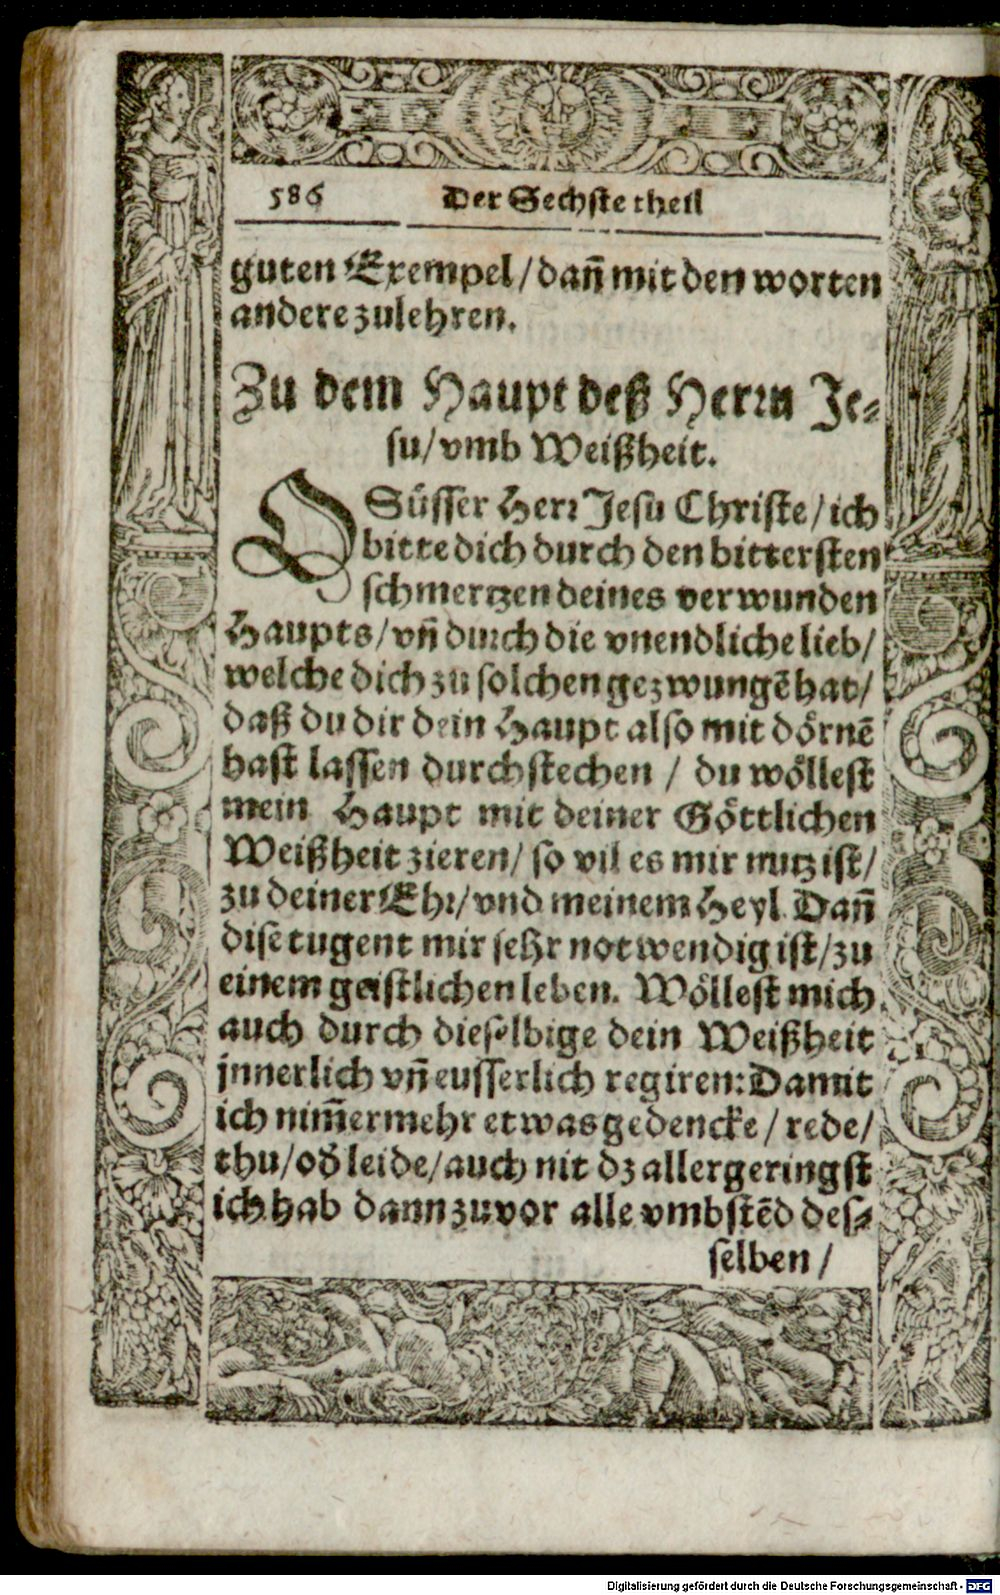 586 Der Sechste theil
guten Exempel / dañ mit den worten
andere zulehren.
Zu dem Haupt deß Herrn Je⸗
su / vmb Weißheit.
O Süsser Herr Jesu Christe / ich
bitte dich durch den bittersten
schmertzen deines verwunden
Haupts / vñ durch die vnendliche lieb /
welche dich zu solchen gezwungẽ hat /
daß du dir dein Haupt also mit dörnẽ
hast lassen durchstechen / du wöllest
mein Haupt mit deiner Göttlichen
Weißheit zieren / so vil es mir nutz ist /
zu deiner Ehr / vnd meinem Heyl. Dañ
dise tugent mir sehr notwendig ist / zu
einem geistlichen leben. Wöllest mich
auch durch dieselbige dein Weißheit
jnnerlich vñ eusserlich regiren: Damit
ich nim̃ermehr etwas gedencke / rede /
thu / oð leide / auch nit dz allergeringst
ich hab dann zuvor alle vmbstẽd des⸗
selben /
Digitalisierung gefördert durch die Deutsche Forschungsgemeinschaft - DFG